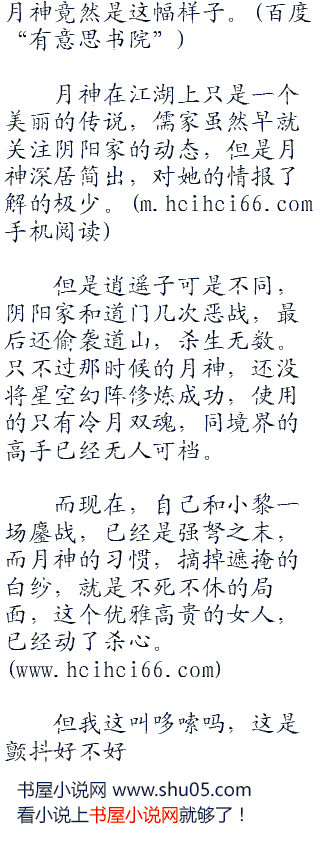 月神竟然是这幅样子。(百度
“有意思书院”)
月神在江湖上只是一个
美丽的传说，儒家虽然早就
关注阴阳家的动态，但是月
神深居简出，对她的情报了
解的极少。(m.hcihci66.com
手机阅读)
但是逍遥子可是不同，
阴阳家和道门几次恶战，最
后还偷袭道山，杀生无数。
只不过那时候的月神，还没
将星空幻阵修炼成功，使用
的只有冷月双魂，同境界的
高手已经无人可档。
而现在，自己和小黎一
场鏖战，已经是强弩之末，
而月神的习惯，摘掉遮掩的
白纱，就是不死不休的局
面，这个优雅高贵的女人，
已经动了杀心。
(www.hcihci66.com)
但我这叫哆嗦吗，这是
颤抖好不好
书屋小说网 www.shu05.com
看小说上书屋小说网就够了！